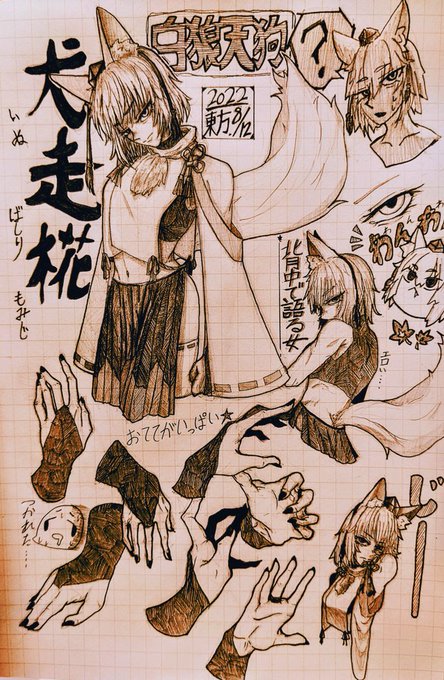 白狼天狗
?
2022
東方.8/12
犬走椛
いぬ
ばしり
もみじ
わんわん
背中で語る女
おててがいっぱい☆
つかれた…